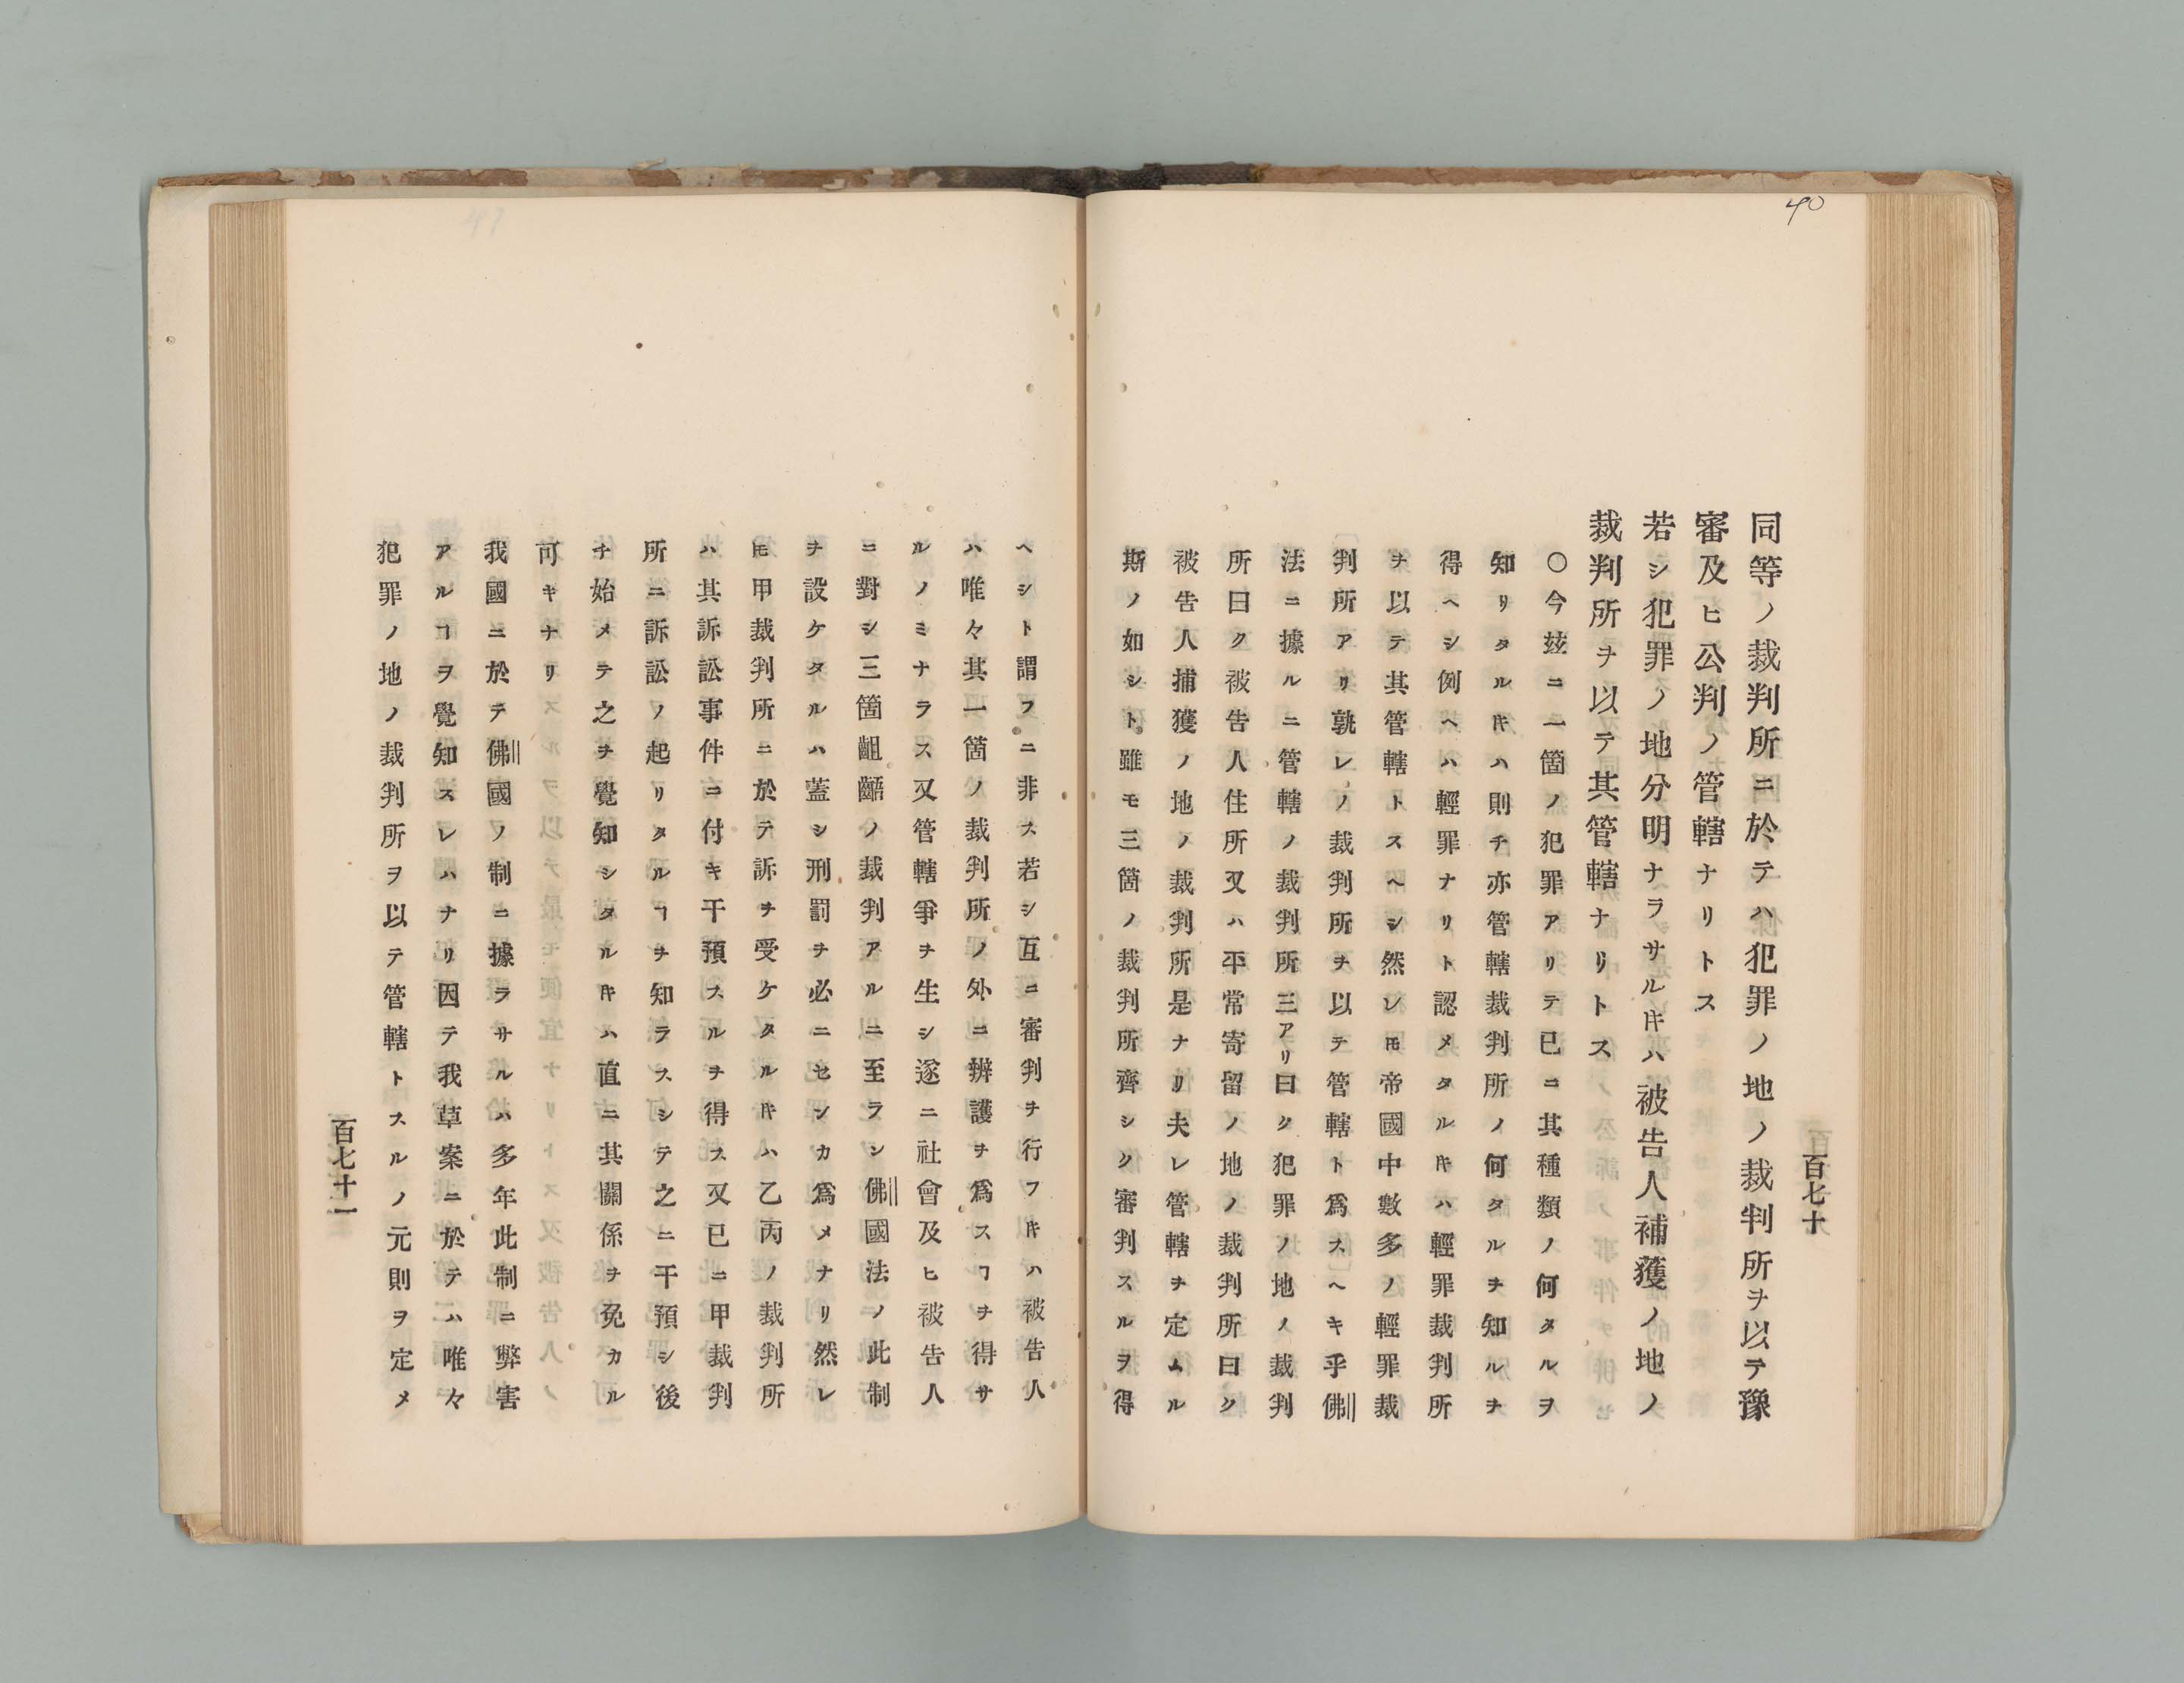 40
百七十
同等ノ裁判所ニ於テハ犯罪ノ地ノ裁判所ヲ以テ豫
審及ヒ公判ノ管轄ナリトス
若シ犯罪ノ地分明ナラサルキハ被告人補獲ノ地ノ
裁判所ヲ以テ其管轄ナリトス
〇今玆ニ一箇ノ犯罪アリテ已ニ其種類ノ何タルヲ
知リタルキハ則チ亦管轄裁判所ノ何タルヲ知ルヲ
得ヘシ例ヘハ輕罪ナリト認メタルキハ輕罪裁判所
ヲ以テ其管轄トスヘシ然レ𪜈帝國中數多ノ輕罪裁
判所アリ孰レノ裁判所ヲ以テ管轄ト爲スヘキ乎佛
法ニ據ルニ管轄ノ裁判所三アリ曰ク犯罪ノ地ノ裁判
所曰ク被告人住所又ハ平常寄留ノ地ノ裁判所曰ク
被告人捕獲ノ地ノ裁判所是ナリ夫レ管轄ヲ定ムル
斯ノ如シト雖モ三箇ノ裁判所齊シク審判スルヲ得
ヘシト謂フニ非ス若シ互ニ審判ヲ行フキハ被告人
ハ唯々其一箇ノ裁判所ノ外ニ辨護ヲ爲スヿヲ得サ
ルノミナラス又管轄爭ヲ生シ遂ニ社會及ヒ被告人
ニ對シ三箇齟齬ノ裁判アルニ至ラン佛國法ノ此制
ヲ設ケタルハ蓋シ刑罰ヲ必ニセンカ爲メナリ然レ
𪜈甲裁判所ニ於テ訴ヲ受ケタルキハ乙丙ノ裁判所
ハ其訴訟事件ニ付キ干預スルヲ得ス又已ニ甲裁判
所ニ訴訟ノ起リタルヿヲ知ラスシテ之ニ干預シ後
チ始メテ之ヲ覺知シタルキハ直ニ其關係ヲ免カル
可キナリ
我國ニ於テ佛國ノ制ニ據ラサルハ多年此制ニ弊害
アルヿヲ覺知スレハナリ因テ我草案ニ於テハ唯々
犯罪ノ地ノ裁判所ヲ以テ管轄トスルノ元則ヲ定メ
百七十一